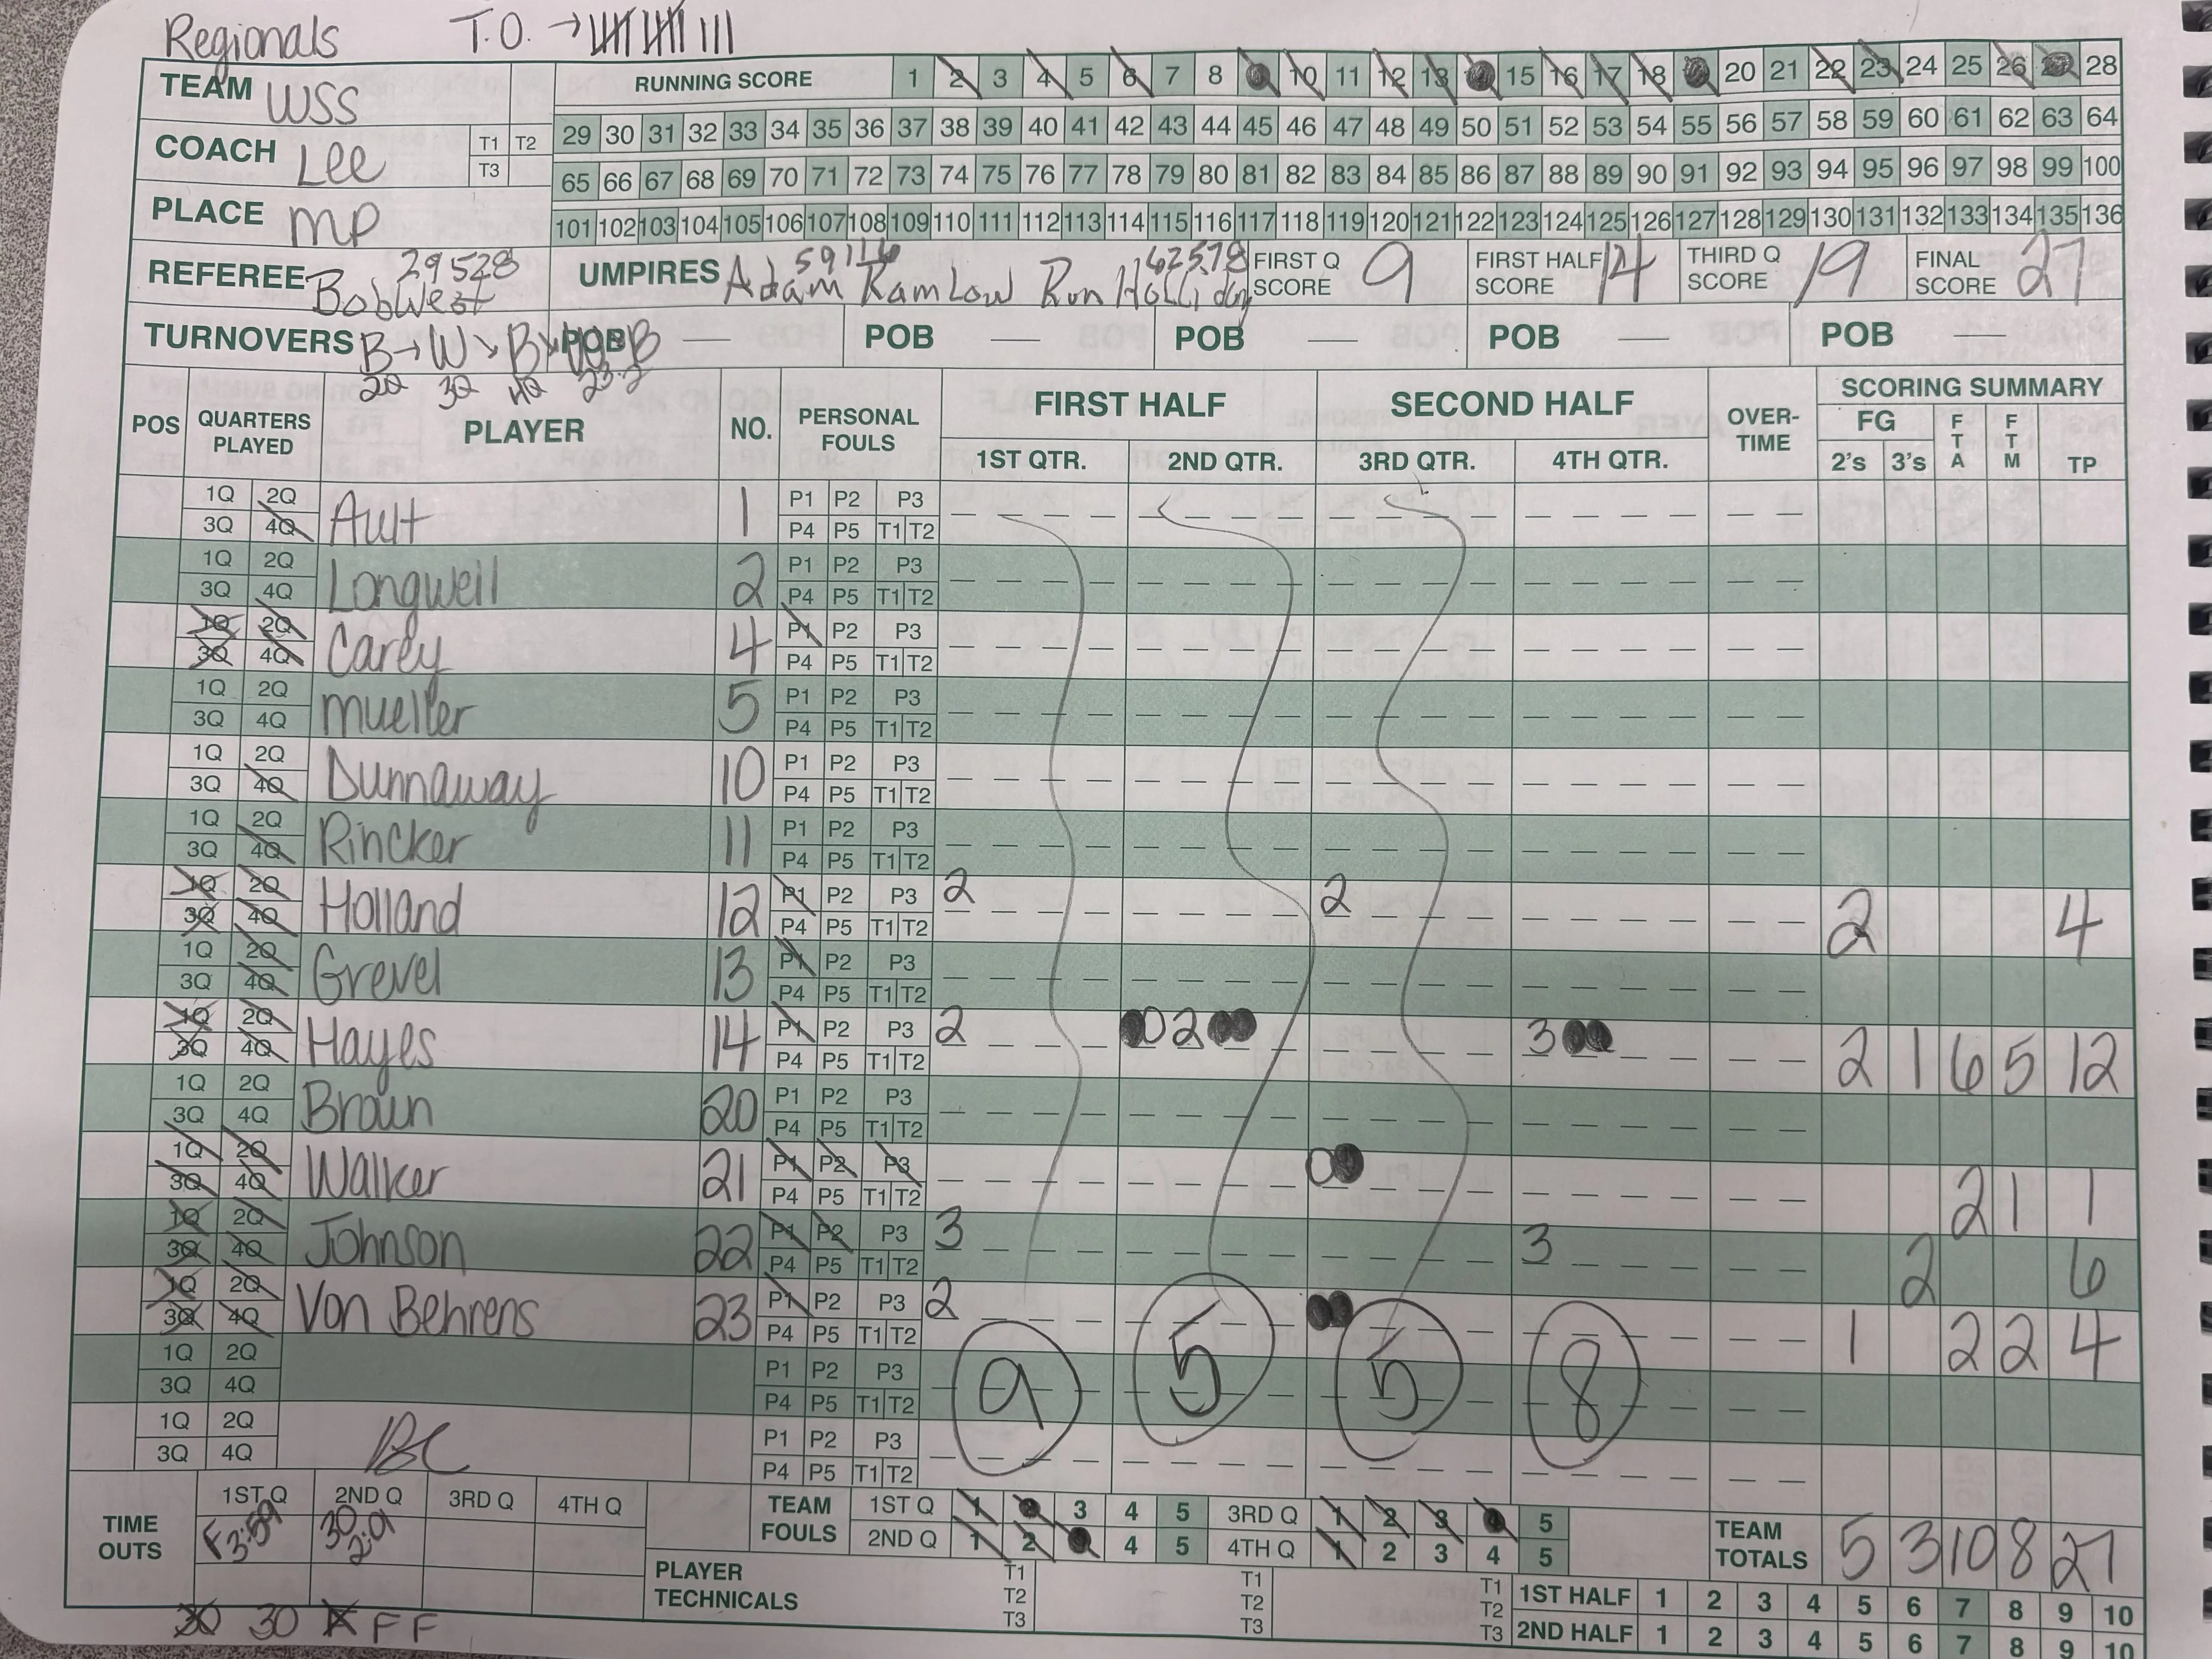 Regionals T.O. →
TEAM WSS RUNNING SCORE 1 2 3 4 5 6 7 8 10 11 12 13 15 16 17 18 20 21 22 23 24 25 26 28
COACH Lee T1 T2 T3 29 30 31 32 33 34 35 36 37 38 39 40 41 42 43 44 45 46 47 48 49 50 51 52 53 54 55 56 57 58 59 60 61 62 63 64
65 66 67 68 69 70 71 72 73 74 75 76 77 78 79 80 81 82 83 84 85 86 87 88 89 90 91 92 93 94 95 96 97 98 99 100
PLACE MP 101 102 103 104 105 106 107 108 109 110 111 112 113 114 115 116 117 118 119 120 121 122 123 124 125 126 127 128 129 130 131 132 133 134 135 136
REFEREE Bob West 29528 UMPIRES Adam Ramlow 59116 Ron Holliday 62578 FIRST Q SCORE 9 FIRST HALF SCORE 14 THIRD Q SCORE 19 FINAL SCORE 27
TURNOVERS B→W↘B W B POB — POB — POB — POB — POB —
2Q 3Q 4Q 23.2
POS QUARTERS PLAYED PLAYER NO. PERSONAL FOULS FIRST HALF SECOND HALF OVER-TIME SCORING SUMMARY
1ST QTR. 2ND QTR. 3RD QTR. 4TH QTR. FG 2's 3's FTA FTM TP
1Q 2Q P1 P2 P3
3Q 4Q Ault 1 P4 P5 T1 T2
1Q 2Q P1 P2 P3
3Q 4Q Longwell 2 P4 P5 T1 T2
1Q 2Q P1 P2 P3
3Q 4Q Carey 4 P4 P5 T1 T2
1Q 2Q P1 P2 P3
3Q 4Q Mueller 5 P4 P5 T1 T2
1Q 2Q P1 P2 P3
3Q 4Q Dunnaway 10 P4 P5 T1 T2
1Q 2Q P1 P2 P3
3Q 4Q Rincker 11 P4 P5 T1 T2
1Q 2Q P1 P2 P3 2 2
3Q 4Q Holland 12 P4 P5 T1 T2 2 4
1Q 2Q P1 P2 P3
3Q 4Q Grevel 13 P4 P5 T1 T2
1Q 2Q P1 P2 P3 2 0 2 3
3Q 4Q Hayes 14 P4 P5 T1 T2 2 1 6 5 12
1Q 2Q P1 P2 P3
3Q 4Q Braun 20 P4 P5 T1 T2
1Q 2Q P1 P2 P3 0
3Q 4Q Walker 21 P4 P5 T1 T2 2 1 1
1Q 2Q P1 P2 P3 3 3
3Q 4Q Johnson 22 P4 P5 T1 T2 2 6
1Q 2Q P1 P2 P3 2
3Q 4Q Von Behrens 23 P4 P5 T1 T2 1 2 2 4
1Q 2Q P1 P2 P3
3Q 4Q P4 P5 T1 T2 9 5 5 8
1Q 2Q P1 P2 P3
3Q 4Q BC P4 P5 T1 T2
TIME OUTS 1ST Q 2ND Q 3RD Q 4TH Q TEAM FOULS 1ST Q 1 2 3 4 5 3RD Q 1 2 3 4 5 TEAM TOTALS 5 3 10 8 27
F 3:59 30 2:01 2ND Q 1 2 3 4 5 4TH Q 1 2 3 4 5
PLAYER TECHNICALS T1 T2 T3 T1 T2 T3 T1 T2 T3 1ST HALF 1 2 3 4 5 6 7 8 9 10
2ND HALF 1 2 3 4 5 6 7 8 9 10
30 30 F F F